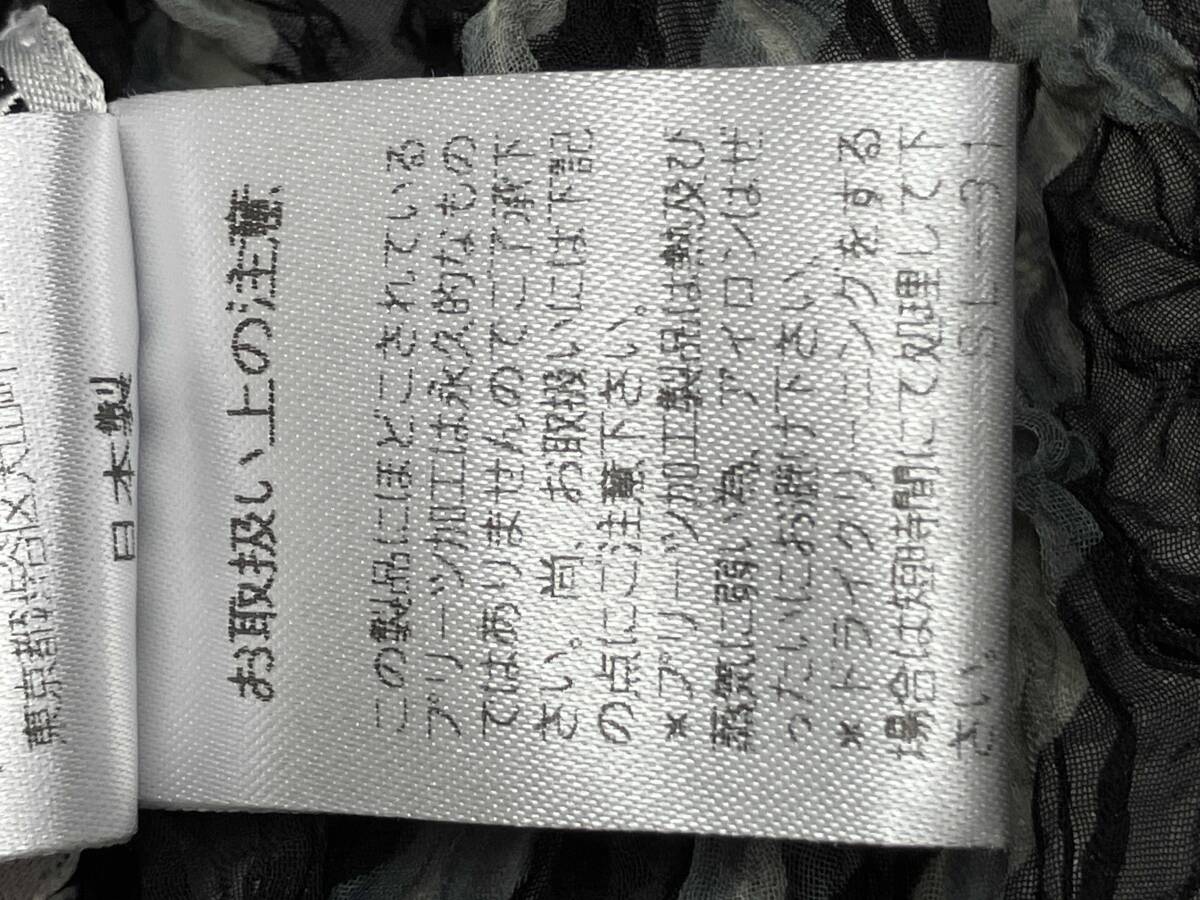 東京都渋谷区
日本製
お取扱い上の注意
この製品にほどこされている
プリーツ加工は永久的なもの
ではありませんのでご了承下
さい。尚、お取扱いには下記
の点にご注意下さい。
*プリーツ加工製品は熱及び
蒸気に弱い為、アイロンはぜ
ったいにお避け下さい。
*ドライクリーニングをする
場合は短時間にて処理して下
さい。